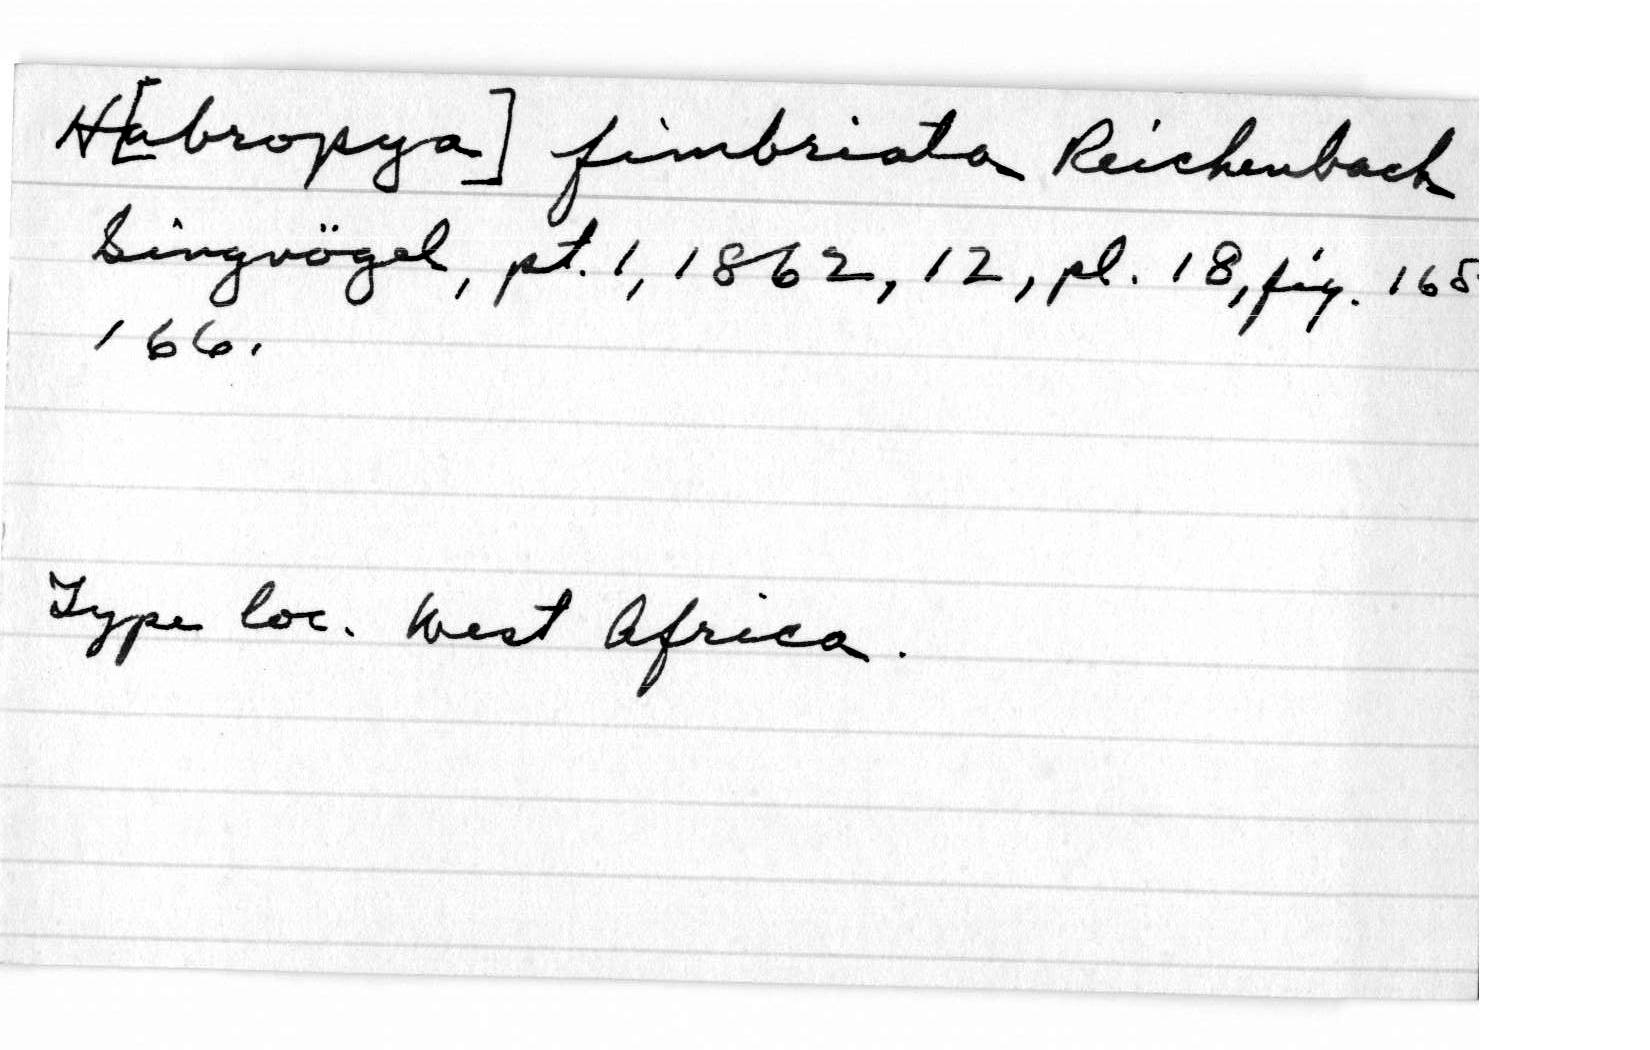 H[abropyga] fimbriata Reichenbach
Singvögel, pt. 1, 1862, 12, pl. 18, fig. 165
166.
Type loc. West Africa.